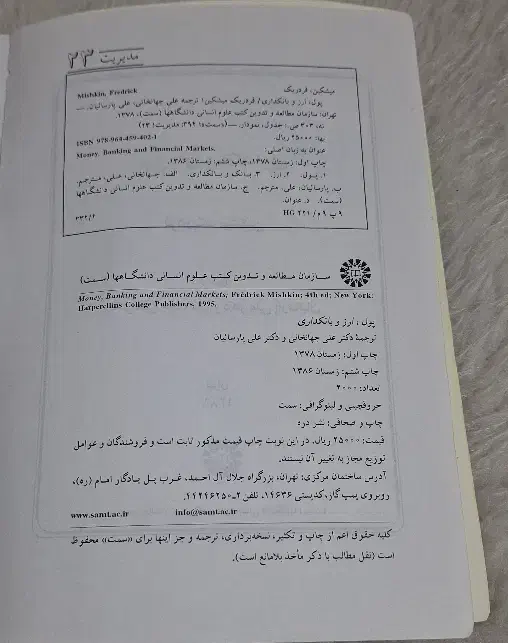 مدیریت ۲۳
Mishkin, Fredrick
میشکین، فردریک
پول، ارز و بانکداری/ فردریک میشکین؛ ترجمه علی جهانخانی، علی پارسائیان. ــ
تهران: سازمان مطالعه و تدوین کتب علوم انسانی دانشگاهها (سمت)، ۱۳۷۸.
نه، ۳۰۳ ص.: جدول، نمودار. ــ («سمت»؛ ۳۹۲: مدیریت؛ ۲۳)
بها: ۲۵۰۰۰ ریال.
ISBN 978-964-459-402-1
عنوان به زبان اصلی:
Money, Banking and Financial Markets.
چاپ اول: زمستان ۱۳۷۸، چاپ ششم: زمستان ۱۳۸۶.
۱. پول. ۲. ارز. ۳. بانک و بانکداری. الف. جهانخانی، علی، مترجم.
ب. پارسائیان، علی، مترجم. ج. سازمان مطالعه و تدوین کتب علوم انسانی دانشگاهها
(سمت). د. عنوان.
۹ پ ۹ م/ HG ۲۲۱
۳۳۲/۴
سازمان مطالعه و تدوین کتب علوم انسانی دانشگاهها (سمت)
Money, Banking and Financial Markets; Fredrick Mishkin; 4th ed; New York:
Harpercllins College Publishers, 1995.
پول، ارز و بانکداری
ترجمهٔ دکتر علی جهانخانی و دکتر علی پارسائیان
چاپ اول: زمستان ۱۳۷۸
چاپ ششم: زمستان ۱۳۸۶
تعداد: ۲۰۰۰
حروفچینی و لیتوگرافی: سمت
چاپ و صحافی: نشر دره
قیمت: ۲۵۰۰۰ ریال. در این نوبت چاپ قیمت مذکور ثابت است و فروشندگان و عوامل
توزیع مجاز به تغییر آن نیستند.
آدرس ساختمان مرکزی: تهران، بزرگراه جلال آل احمد، غرب پل یادگار امام (ره)،
روبروی پمپ گاز، کدپستی ۱۴۶۳۶، تلفن ۲ـ۴۴۲۴۶۲۵۰.
www.samt.ac.ir
info@samt.ac.ir
کلیه حقوق اعم از چاپ و تکثیر، نسخه‌برداری، ترجمه و جز اینها برای «سمت» محفوظ
است (نقل مطالب با ذکر مأخذ بلامانع است).